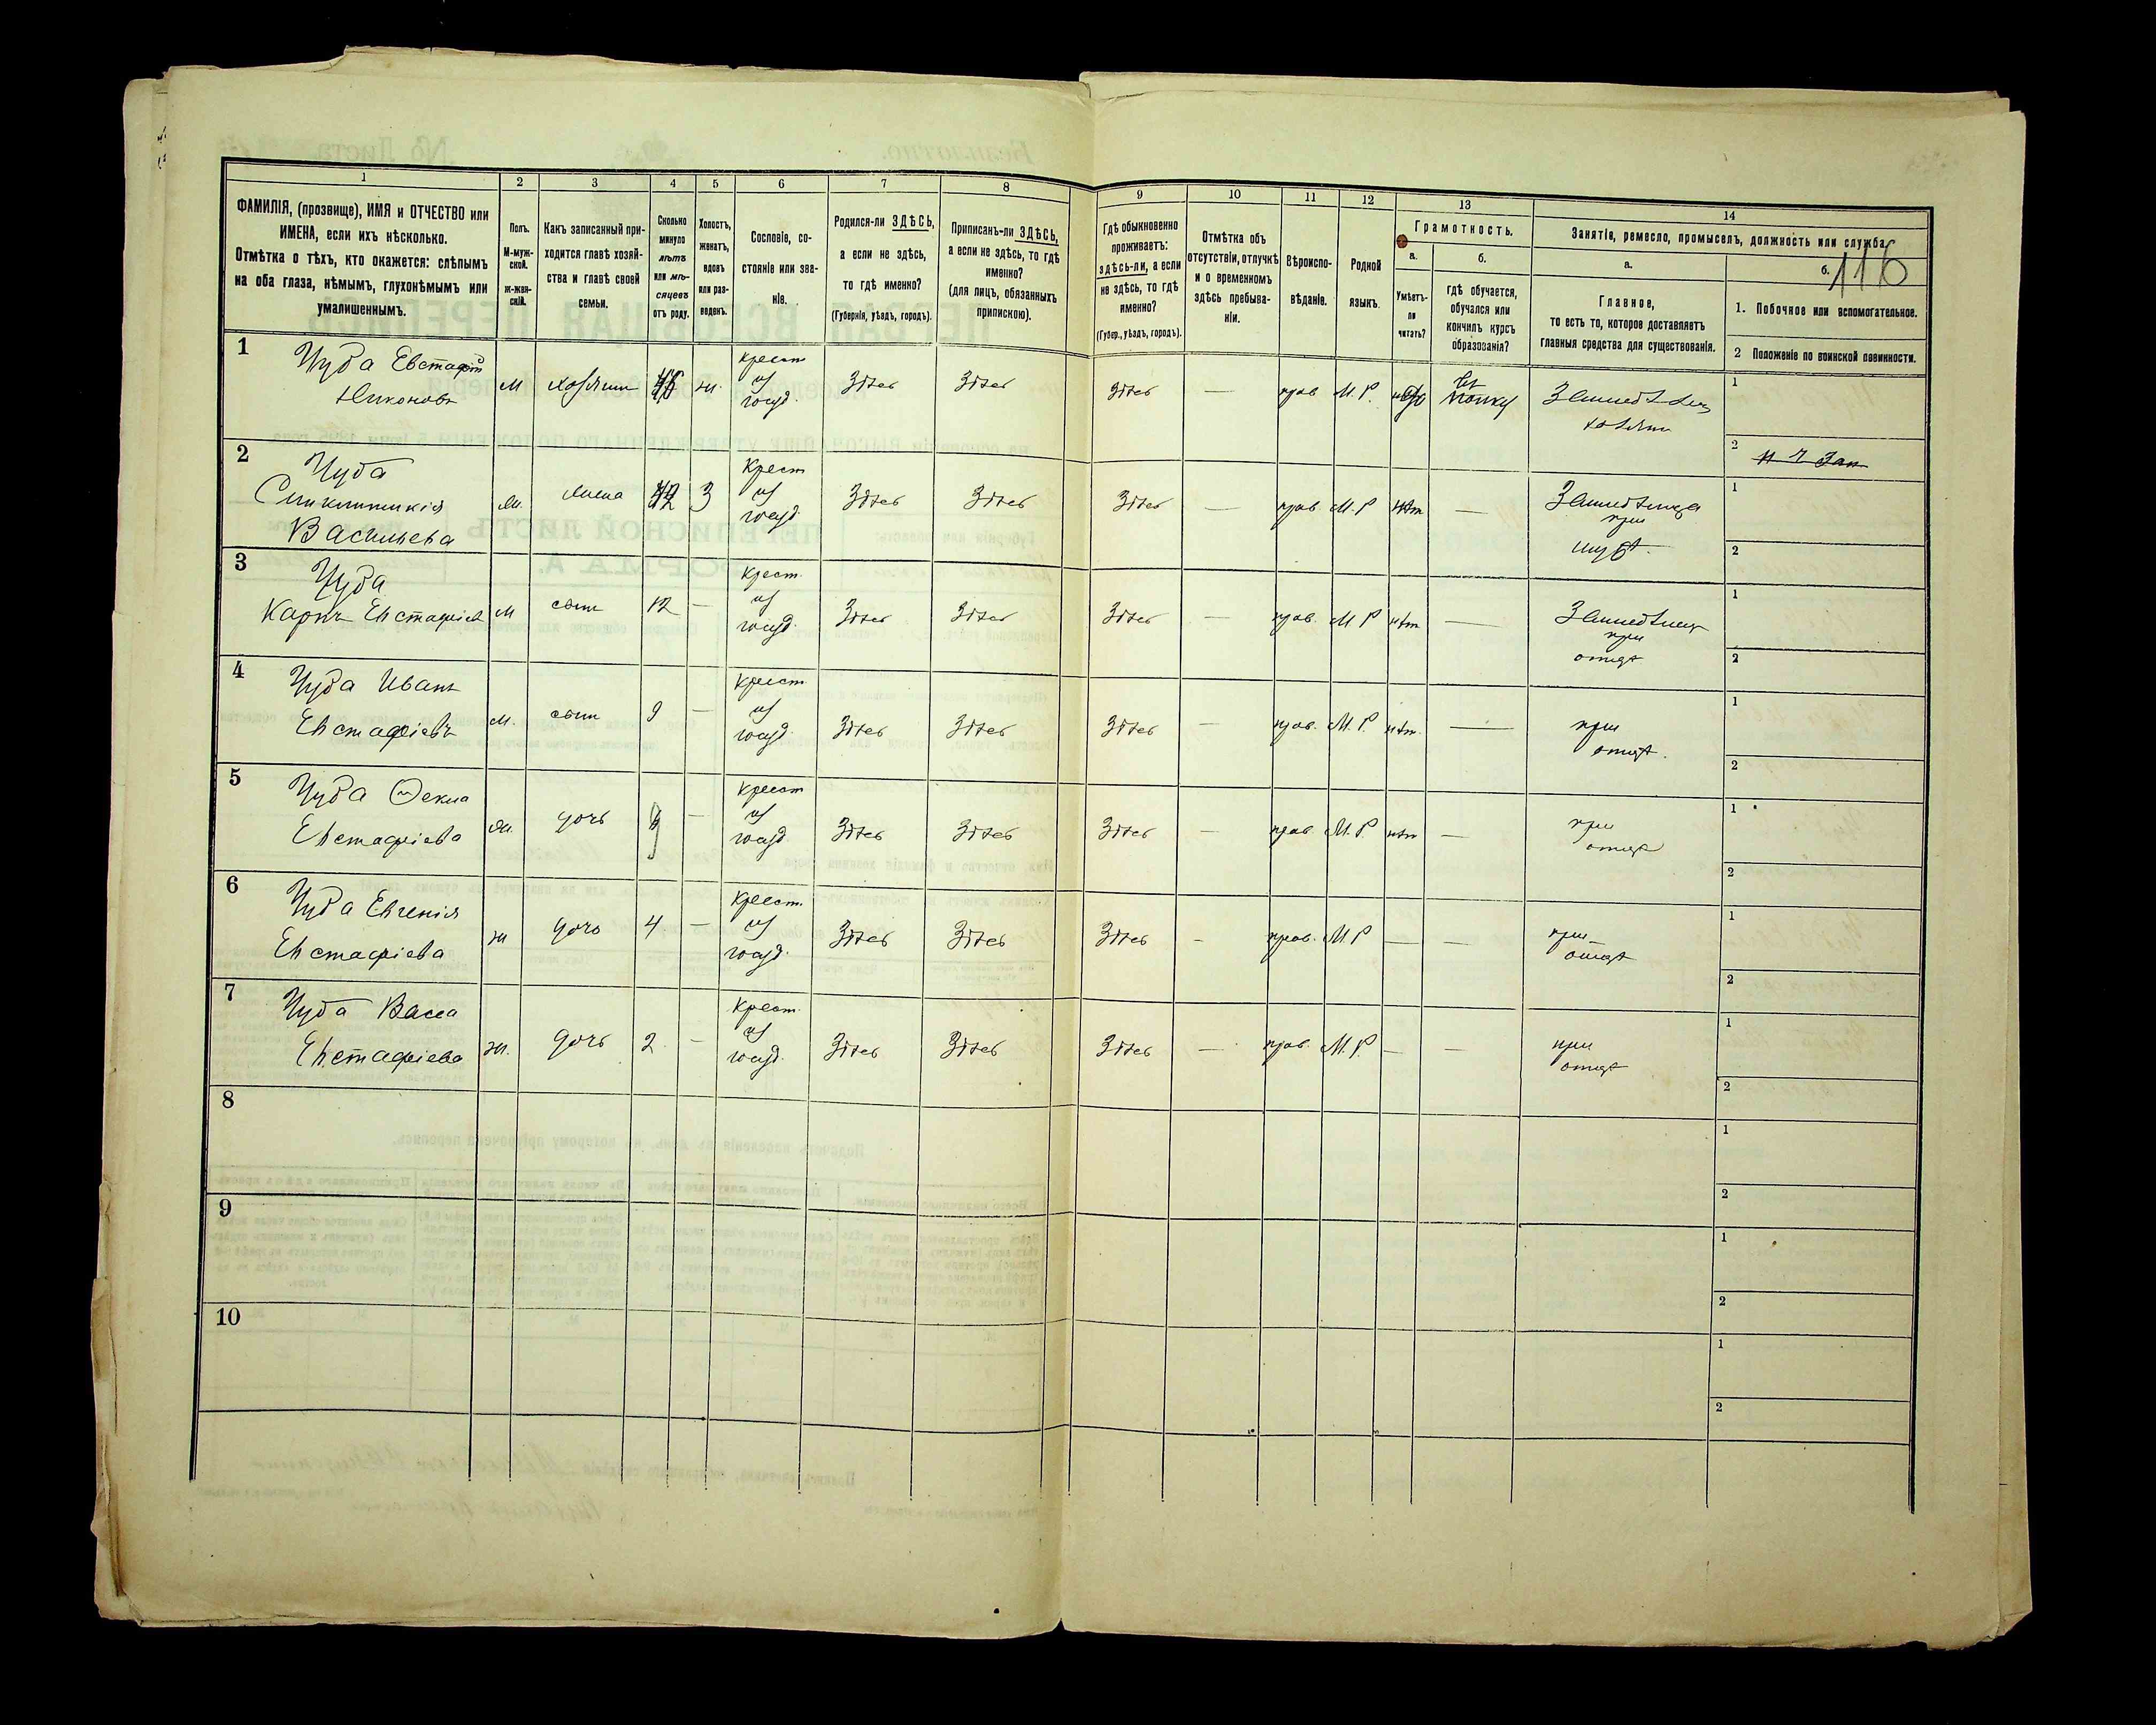 1 2 3 4 5 6 7 8 9 10 11 12 13 14
ФАМИЛІЯ, (прозвище), ИМЯ и ОТЧЕСТВО или
ИМЕНА, если ихъ нѣсколько.
Отмѣтка о тѣхъ, кто окажется: слѣпымъ
на оба глаза, нѣмымъ, глухонѣмымъ или
умалишеннымъ.
Полъ.
М-муж-
ской.
ж-жен-
скій.
Какъ записанный при-
ходится главѣ хозяй-
ства и главѣ своей
семьи.
Сколько
минуло
лѣтъ
или мѣ-
сяцевъ
отъ роду.
Холостъ,
женатъ,
вдовъ
или раз-
веденъ.
Сословіе, со-
стояніе или зва-
ніе.
Родился-ли ЗДѢСЬ,
а если не здѣсь,
то гдѣ именно?
(Губернія, уѣздъ, городъ).
Приписанъ-ли ЗДѢСЬ,
а если не здѣсь, то гдѣ
именно?
(для лицъ, обязанныхъ
припискою).
Гдѣ обыкновенно
проживаетъ:
здѣсь-ли, а если
не здѣсь, то гдѣ
именно?
(Губер., уѣздъ, городъ).
Отмѣтка объ
отсутствіи, отлучкѣ
и о временномъ
здѣсь пребыва-
ніи.
Вѣроиспо-
вѣданіе.
Родной
языкъ.
Грамотность.
а.
Умѣетъ-
ли
читать?
б.
гдѣ обучается,
обучался или
кончилъ курсъ
образованія?
Занятіе, ремесло, промыселъ, должность или служба.
116
а.
Главное,
то есть то, которое доставляетъ
главныя средства для существованія.
б.
1. Побочное или вспомогательное.
2 Положеніе по воинской повинности.
1 Чуба Евстафій
Никоновъ
м хозяинъ ж. крест из госуд. здѣсь здѣсь здѣсь — прав М.Р.
хозяинъ
1
2
2 Чуба
Васильева
ж. жена 42 З крест из госуд. здѣсь здѣсь здѣсь — прав М.Р нѣт —
при
1
2
3 Чуба
Карпъ Евстафіев
м сын 12 — крест. из госуд. здѣсь здѣсь здѣсь — прав. М.Р нѣт —
при
отцѣ
1
2
4 Чуба Иванъ
Евстафіевъ
м. сын 9 — крест из госуд. здѣсь здѣсь здѣсь — прав. М.Р. нѣт. —
при
отцѣ.
1
2
5 Чуба Ѳекла
Евстафіева
ж. дочь — крест из госуд. здѣсь здѣсь здѣсь — прав М.Р нѣт —
при
отцѣ
1
2
6 Чуба Евгенія
Евстафіева
ж дочь 4 — крест. из госуд. здѣсь здѣсь здѣсь - прав. М.Р — —
при
отцѣ
1
2
7 Чуба Васса
Евстафіева
ж. дочь 2 - крест. из госуд. здѣсь здѣсь здѣсь — прав. М.Р. — —
при
отцѣ
1
2
8
1
2
9
1
2
10
1
2